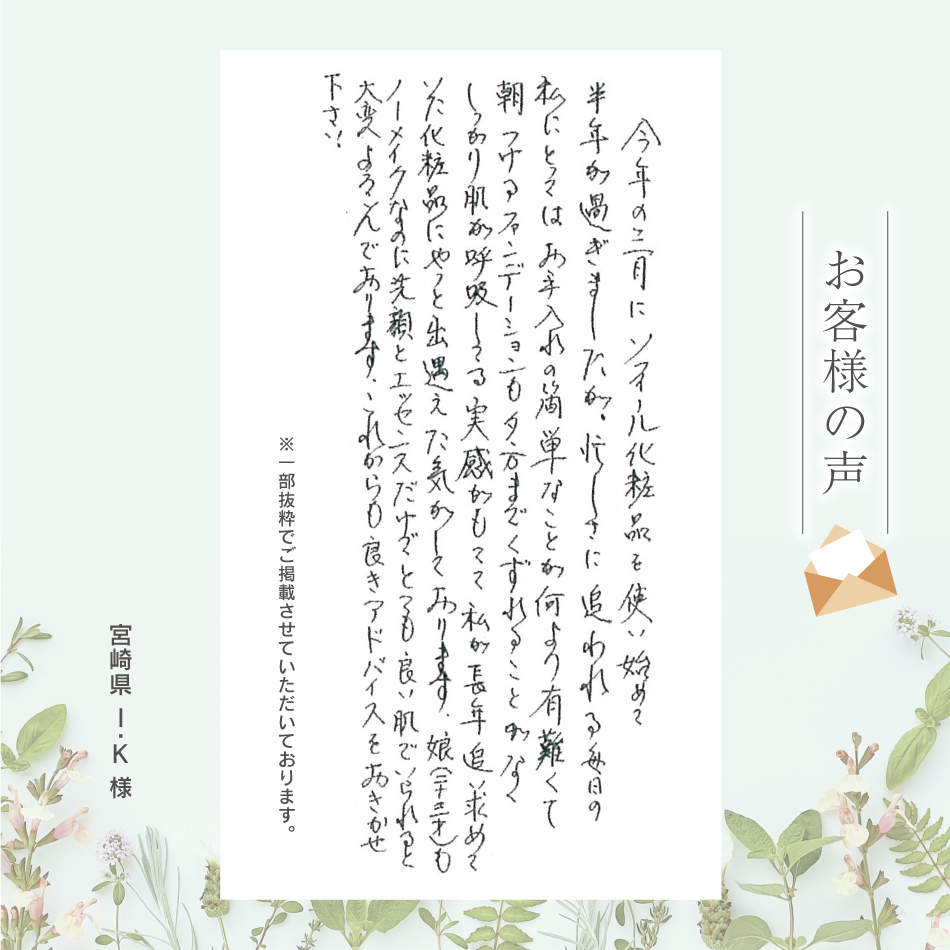 お客様の声
今年の三月にソフィール化粧品を使い始めて
半年が過ぎましたが、忙しさに追われる毎日の
私にとってはお手入れの簡単なことが何より有難くて
朝つけるファンデーションも夕方までくずれることがなく
しっかり肌が呼吸してる実感がもてて私が長年追い求めて
いた化粧品にやっと出遇えた気がしております。娘(二十三才)も
ノーメイクなのに洗顔とエッセンスだけでとても良い肌でいられると
大変よろこんでおります。これからも良きアドバイスをおきかせ
下さい。
※一部抜粋でご掲載させていただいております。
宮崎県 I.K 様